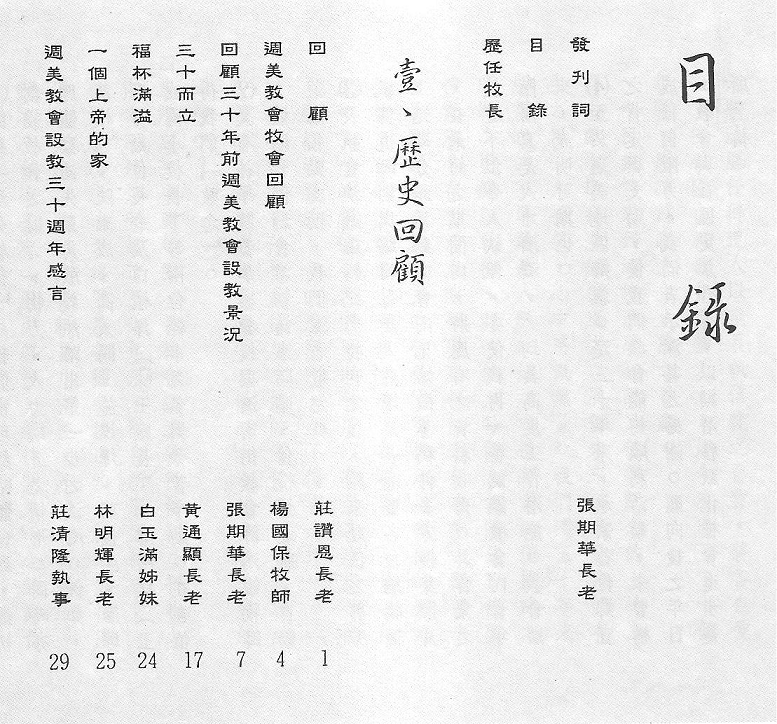 目錄
發刊詞 張期華長老
目錄
歷任牧長
壹、歷史回顧
回顧 莊讚恩長老 1
週美教會牧會回顧 楊國保牧師 4
回顧三十年前週美教會設教景況 張期華長老 7
三十而立 黃通顯長老 17
福杯滿溢 白玉滿姊妹 24
一個上帝的家 林明輝長老 25
週美教會設教三十週年感言 莊清隆執事 29